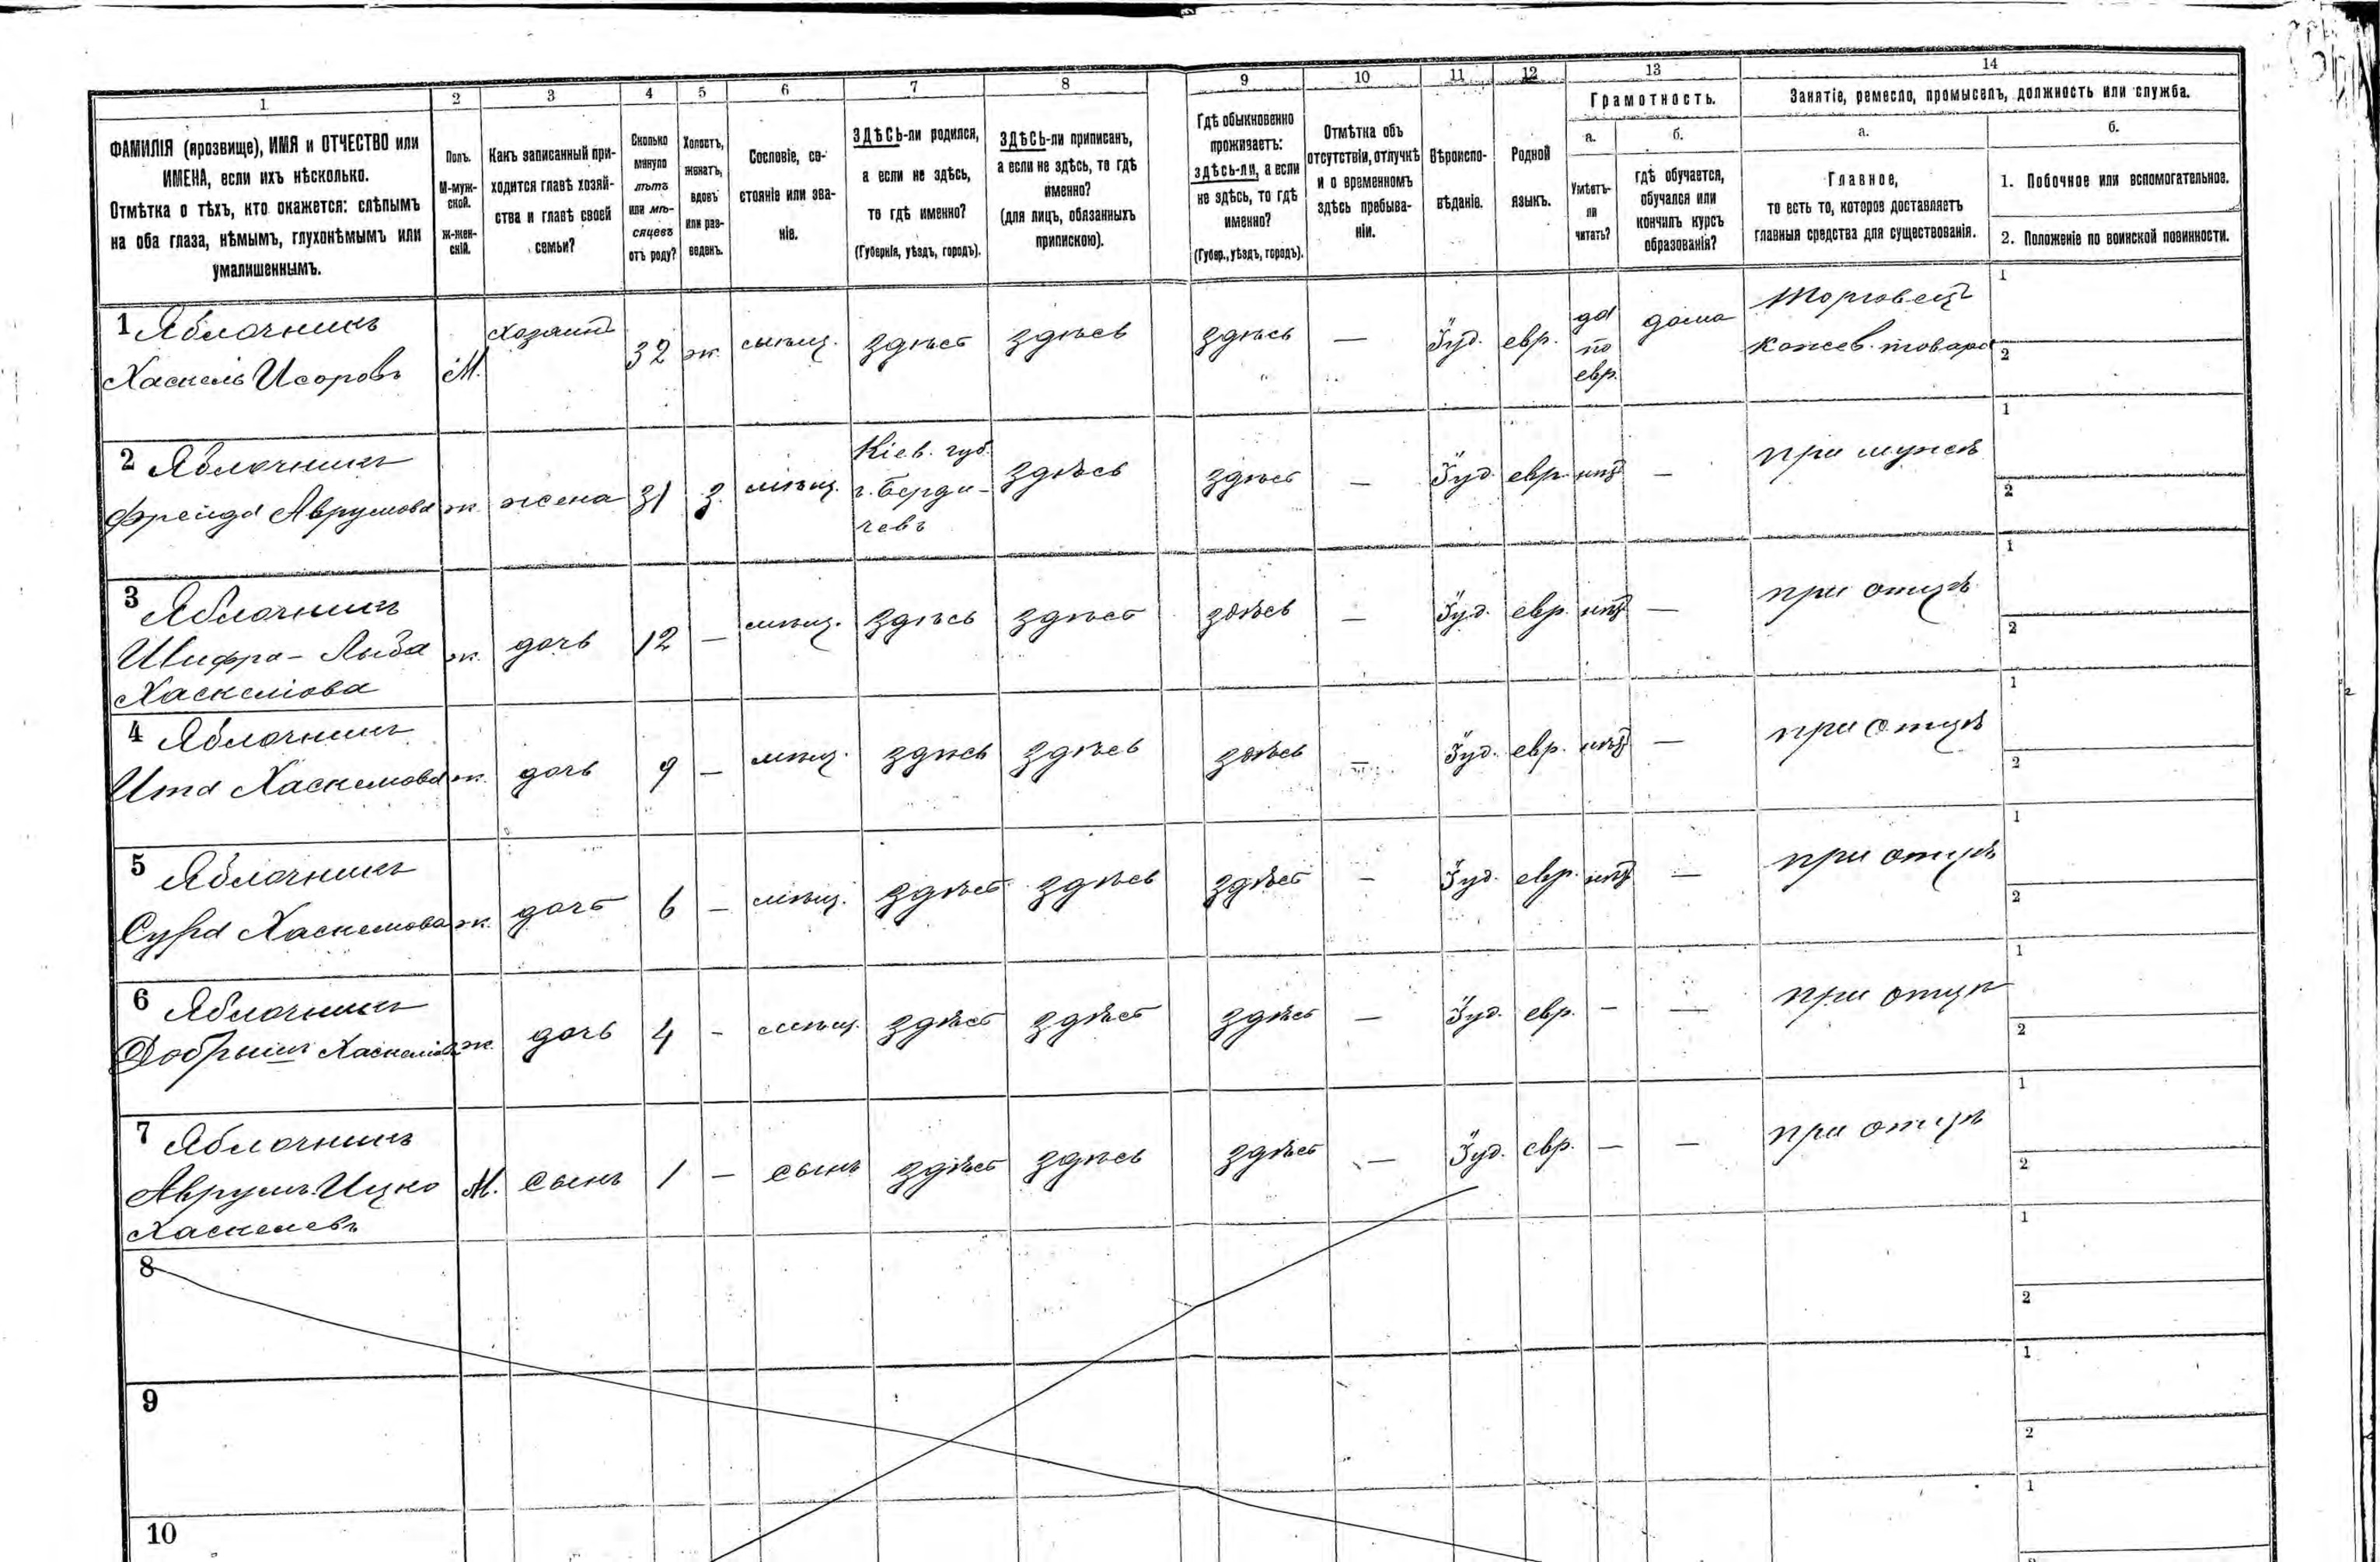 1
2
3
4
5
6
7
8
9
10
11
12
13
14
Грамотность.
Занятіе, ремесло, промыселъ, должность или служба.
ФАМИЛІЯ (прозвище), ИМЯ и ОТЧЕСТВО или
ИМЕНА, если ихъ нѣсколько.
Отмѣтка о тѣхъ, кто окажется: слѣпымъ
на оба глаза, нѣмымъ, глухонѣмымъ или
умалишеннымъ.
Полъ.
М-муж-
ской.
ж-жен-
скій.
Какъ записанный при-
ходится главѣ хозяй-
ства и главѣ своей
семьи?
Сколько
минуло
лѣтъ
или мѣ-
сяцевъ
отъ роду?
Холостъ,
женатъ,
вдовъ
или раз-
веденъ.
Сословіе, со-
стояніе или зва-
ніе.
ЗДѢСЬ-ли родился,
а если не здѣсь,
то гдѣ именно?
(Губернія, уѣздъ, городъ).
ЗДѢСЬ-ли приписанъ,
а если не здѣсь, то гдѣ
именно?
(для лицъ, обязанныхъ
припискою).
Гдѣ обыкновенно
проживаетъ:
здѣсь-ли, а если
не здѣсь, то гдѣ
именно?
(Губер., уѣздъ, городъ).
Отмѣтка объ
отсутствіи, отлучкѣ
и о временномъ
здѣсь пребыва-
ніи.
Вѣроиспо-
вѣданіе.
Родной
языкъ.
а.
Умѣетъ-
ли
читать?
б.
гдѣ обучается,
обучался или
кончилъ курсъ
образованія?
а.
Главное,
то есть то, которое доставляетъ
главныя средства для существованія.
б.
1. Побочное или вспомогательное.
2. Положеніе по воинской повинности.
1 Яблочникъ
Хаскель
М.
хозяинъ
32
ж.
здѣсь
здѣсь
здѣсь
—
Іуд.
евр.
да
по
евр.
дома
Торговецъ
кожев. товара
1
2
2 Яблочникъ
Фрейда Аврумова
ж.
жена
31
з.
мѣщ.
Кіев. губ.
г. Берди-
чевъ
здѣсь
здѣсь
—
Іуд.
евр.
нѣт
—
при мужѣ
1
2
3 Яблочникъ
Шифра-
Хаскелiова
ж.
дочь
12
—
мѣщ.
здѣсь
здѣсь
здѣсь
—
Іуд.
евр.
нѣт
—
при отцѣ
1
2
4 Яблочникъ
Ита Хаскелiова
ж.
дочь
9
—
мѣщ.
здѣсь
здѣсь
здѣсь
—
Іуд.
евр.
нѣт
—
при отцѣ
1
2
5 Яблочникъ
Сура Хаскелiова
ж.
дочь
6
—
мѣщ.
здѣсь
здѣсь
здѣсь
—
Іуд.
евр.
нѣт
—
при отцѣ
1
2
6 Яблочникъ
Добрыш Хаскелiова
ж.
дочь
4
-
мѣщ.
здѣсь
здѣсь
здѣсь
—
Іуд.
евр.
-
—
при отцѣ
1
2
7 Яблочникъ
Аврумъ-Ицко
Хаскелевъ
М.
сынъ
1
—
сынъ
здѣсь
здѣсь
здѣсь
—
Іуд.
евр.
—
—
при отцѣ
1
2
8
1
2
9
1
2
10
1